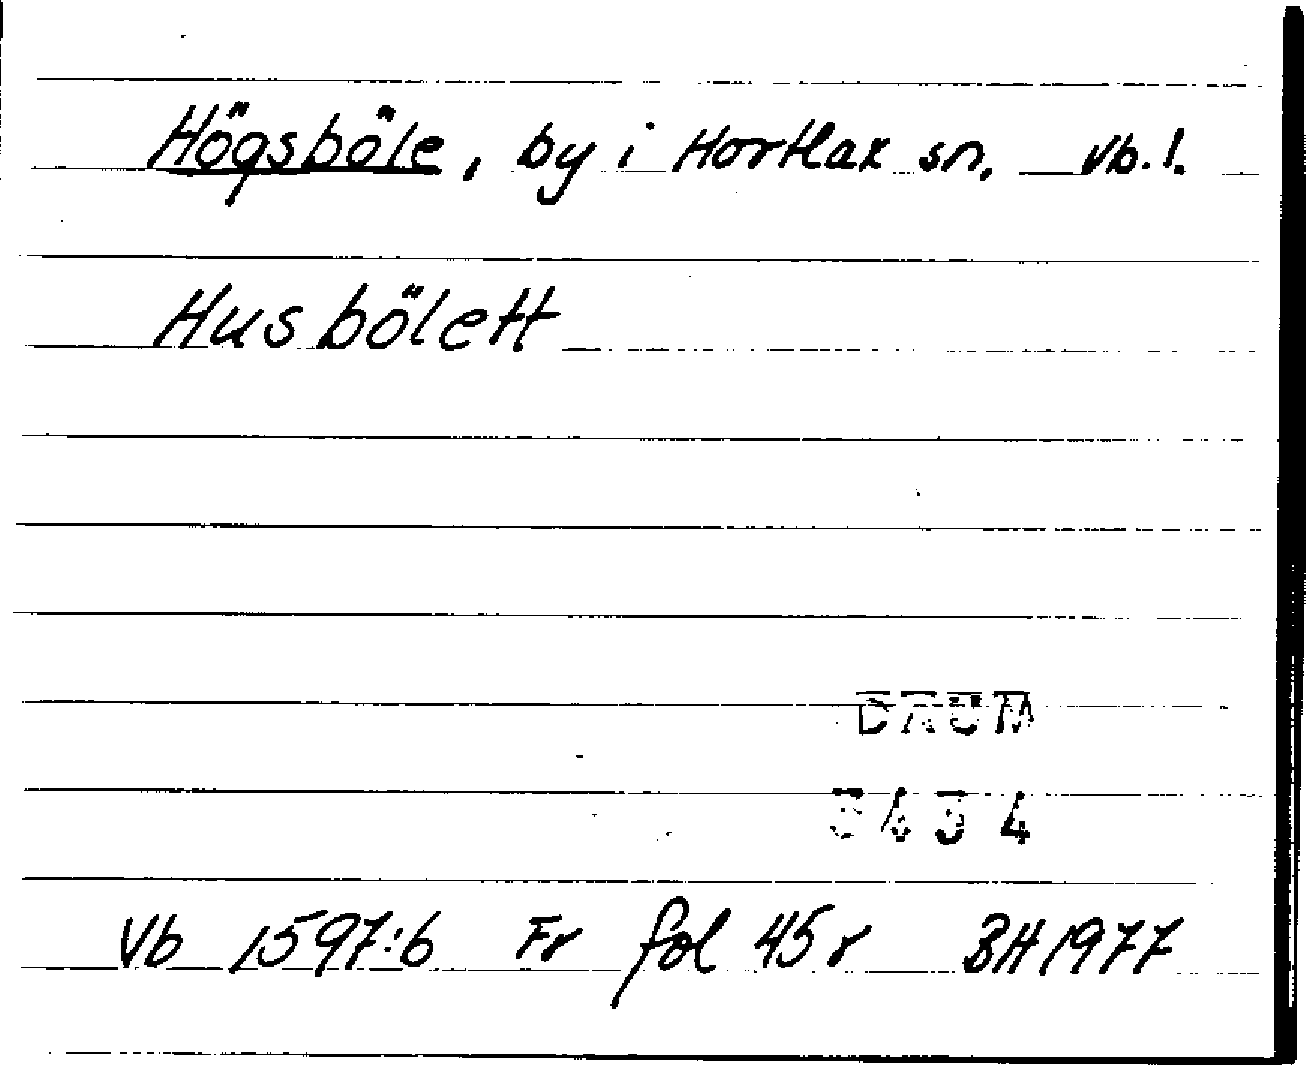 Högsböle, by i Hortlax sn. Vb. l.
Husbölett
DAUM
3434
Vb 1597:6 Fr fol 45 r BH 1977